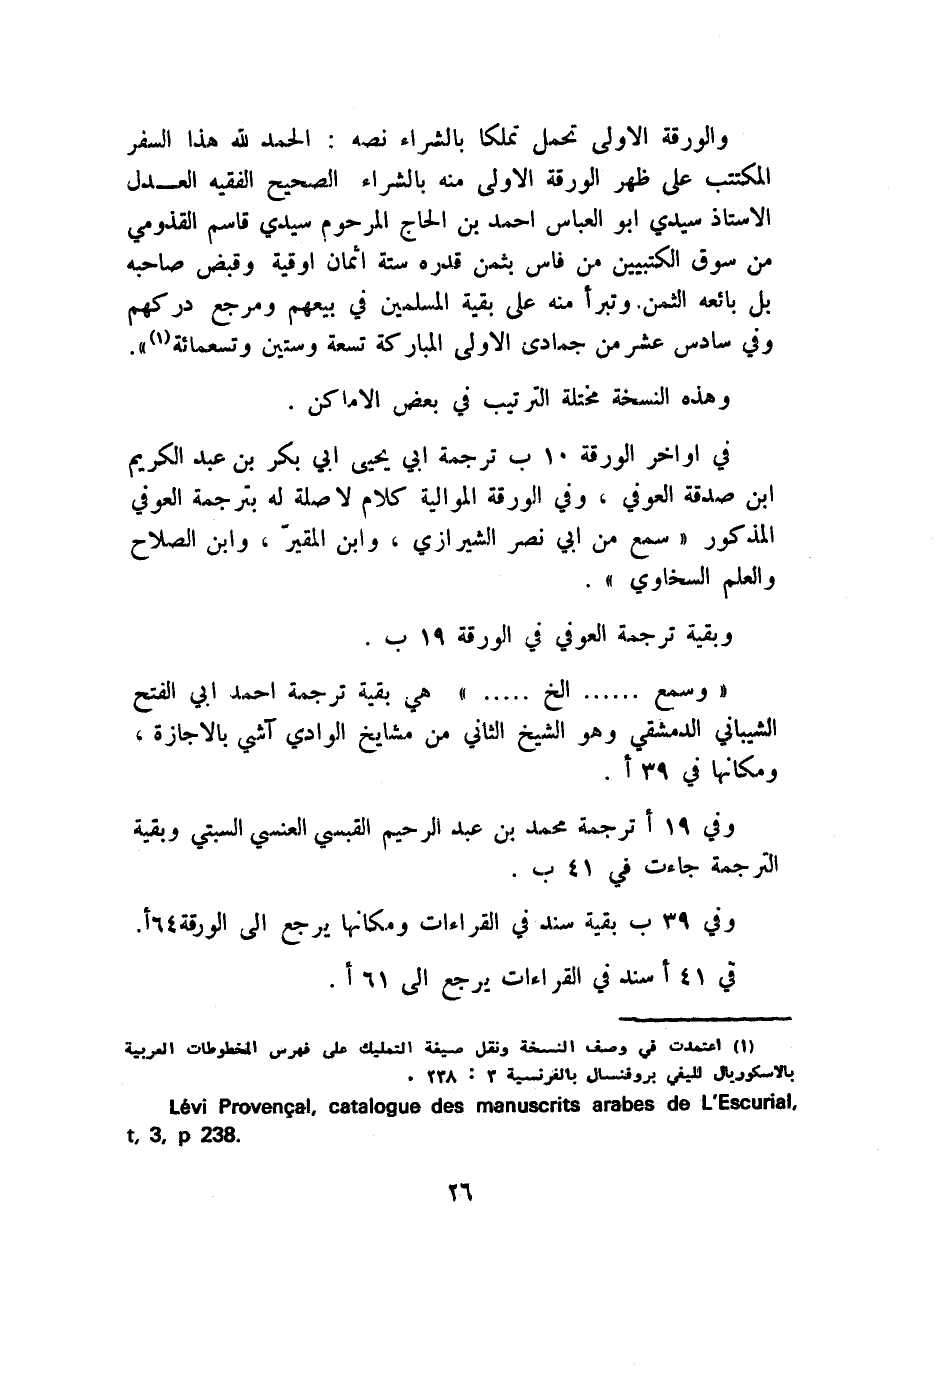 والورقة الاولى تحمل تملكا بالشراء نصه : الحمد لله هذا السفر
المكتتب على ظهر الورقة الاولى منه بالشراء الصحيح الفقيه العـــدل
الاستاذ سيدي ابو العباس احمد بن الحاج المرحوم سيدي قاسم القذومي
من سوق الكتبيين من فاس بثمن قدره ستة اثمان اوقية وقبض صاحبه
بل بائعه الثمن. وتبرأ منه على بقية المسلمين في بيعهم ومرجع دركهم
وفي سادس عشر من جمادى الاولى المباركة تسعة وستين وتسعمائة(١)».
وهذه النسخة مختلة الترتيب في بعض الاماكن .
في اواخر الورقة ١٠ ب ترجمة ابي يحيى ابي بكر بن عبد الكريم
ابن صدقة العوفي ، وفي الورقة الموالية كلام لا صلة له بترجمة العوفي
المذكور « سمع من ابي نصر الشيرازي ، وابن المقيرّ ، وابن الصلاح
والعلم السخاوي » .
وبقية ترجمة العوفي في الورقة ١٩ ب .
« وسمع ...... الخ ..... » هي بقية ترجمة احمد ابي الفتح
الشيباني الدمشقي وهو الشيخ الثاني من مشايخ الوادي آشي بالاجازة ،
ومكانها في ٣٩ أ .
وفي ١٩ أ ترجمة محمد بن عبد الرحيم القبسي العنسي السبتي وبقية
الترجمة جاءت في ٤١ ب .
وفي ٣٩ ب بقية سند في القراءات ومكانها يرجع الى الورقة ٦٤أ.
في ٤١ أ سند في القراءات يرجع الى ٦١ أ .
(١) اعتمدت في وصف النسخة ونقل صيغة التمليك على فهرس المخطوطات العربية
بالاسكوريال لليفي بروفنسال بالفرنسية ٣ : ٢٣٨ .
Lévi Provençal, catalogue des manuscrits arabes de L'Escurial,
t, 3, p 238.
٢٦